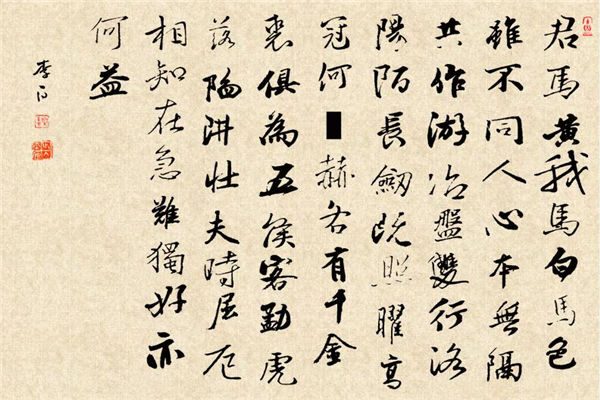 君馬黄我馬白馬色
雖不同人心本無隔
共作游冶盤雙行洛
陽陌長劒既照曜高
冠何■赫各有千金
裘俱為五侯客勐虎
落陷阱壮夫時屈厄
相知在急難獨好亦
何益
李白